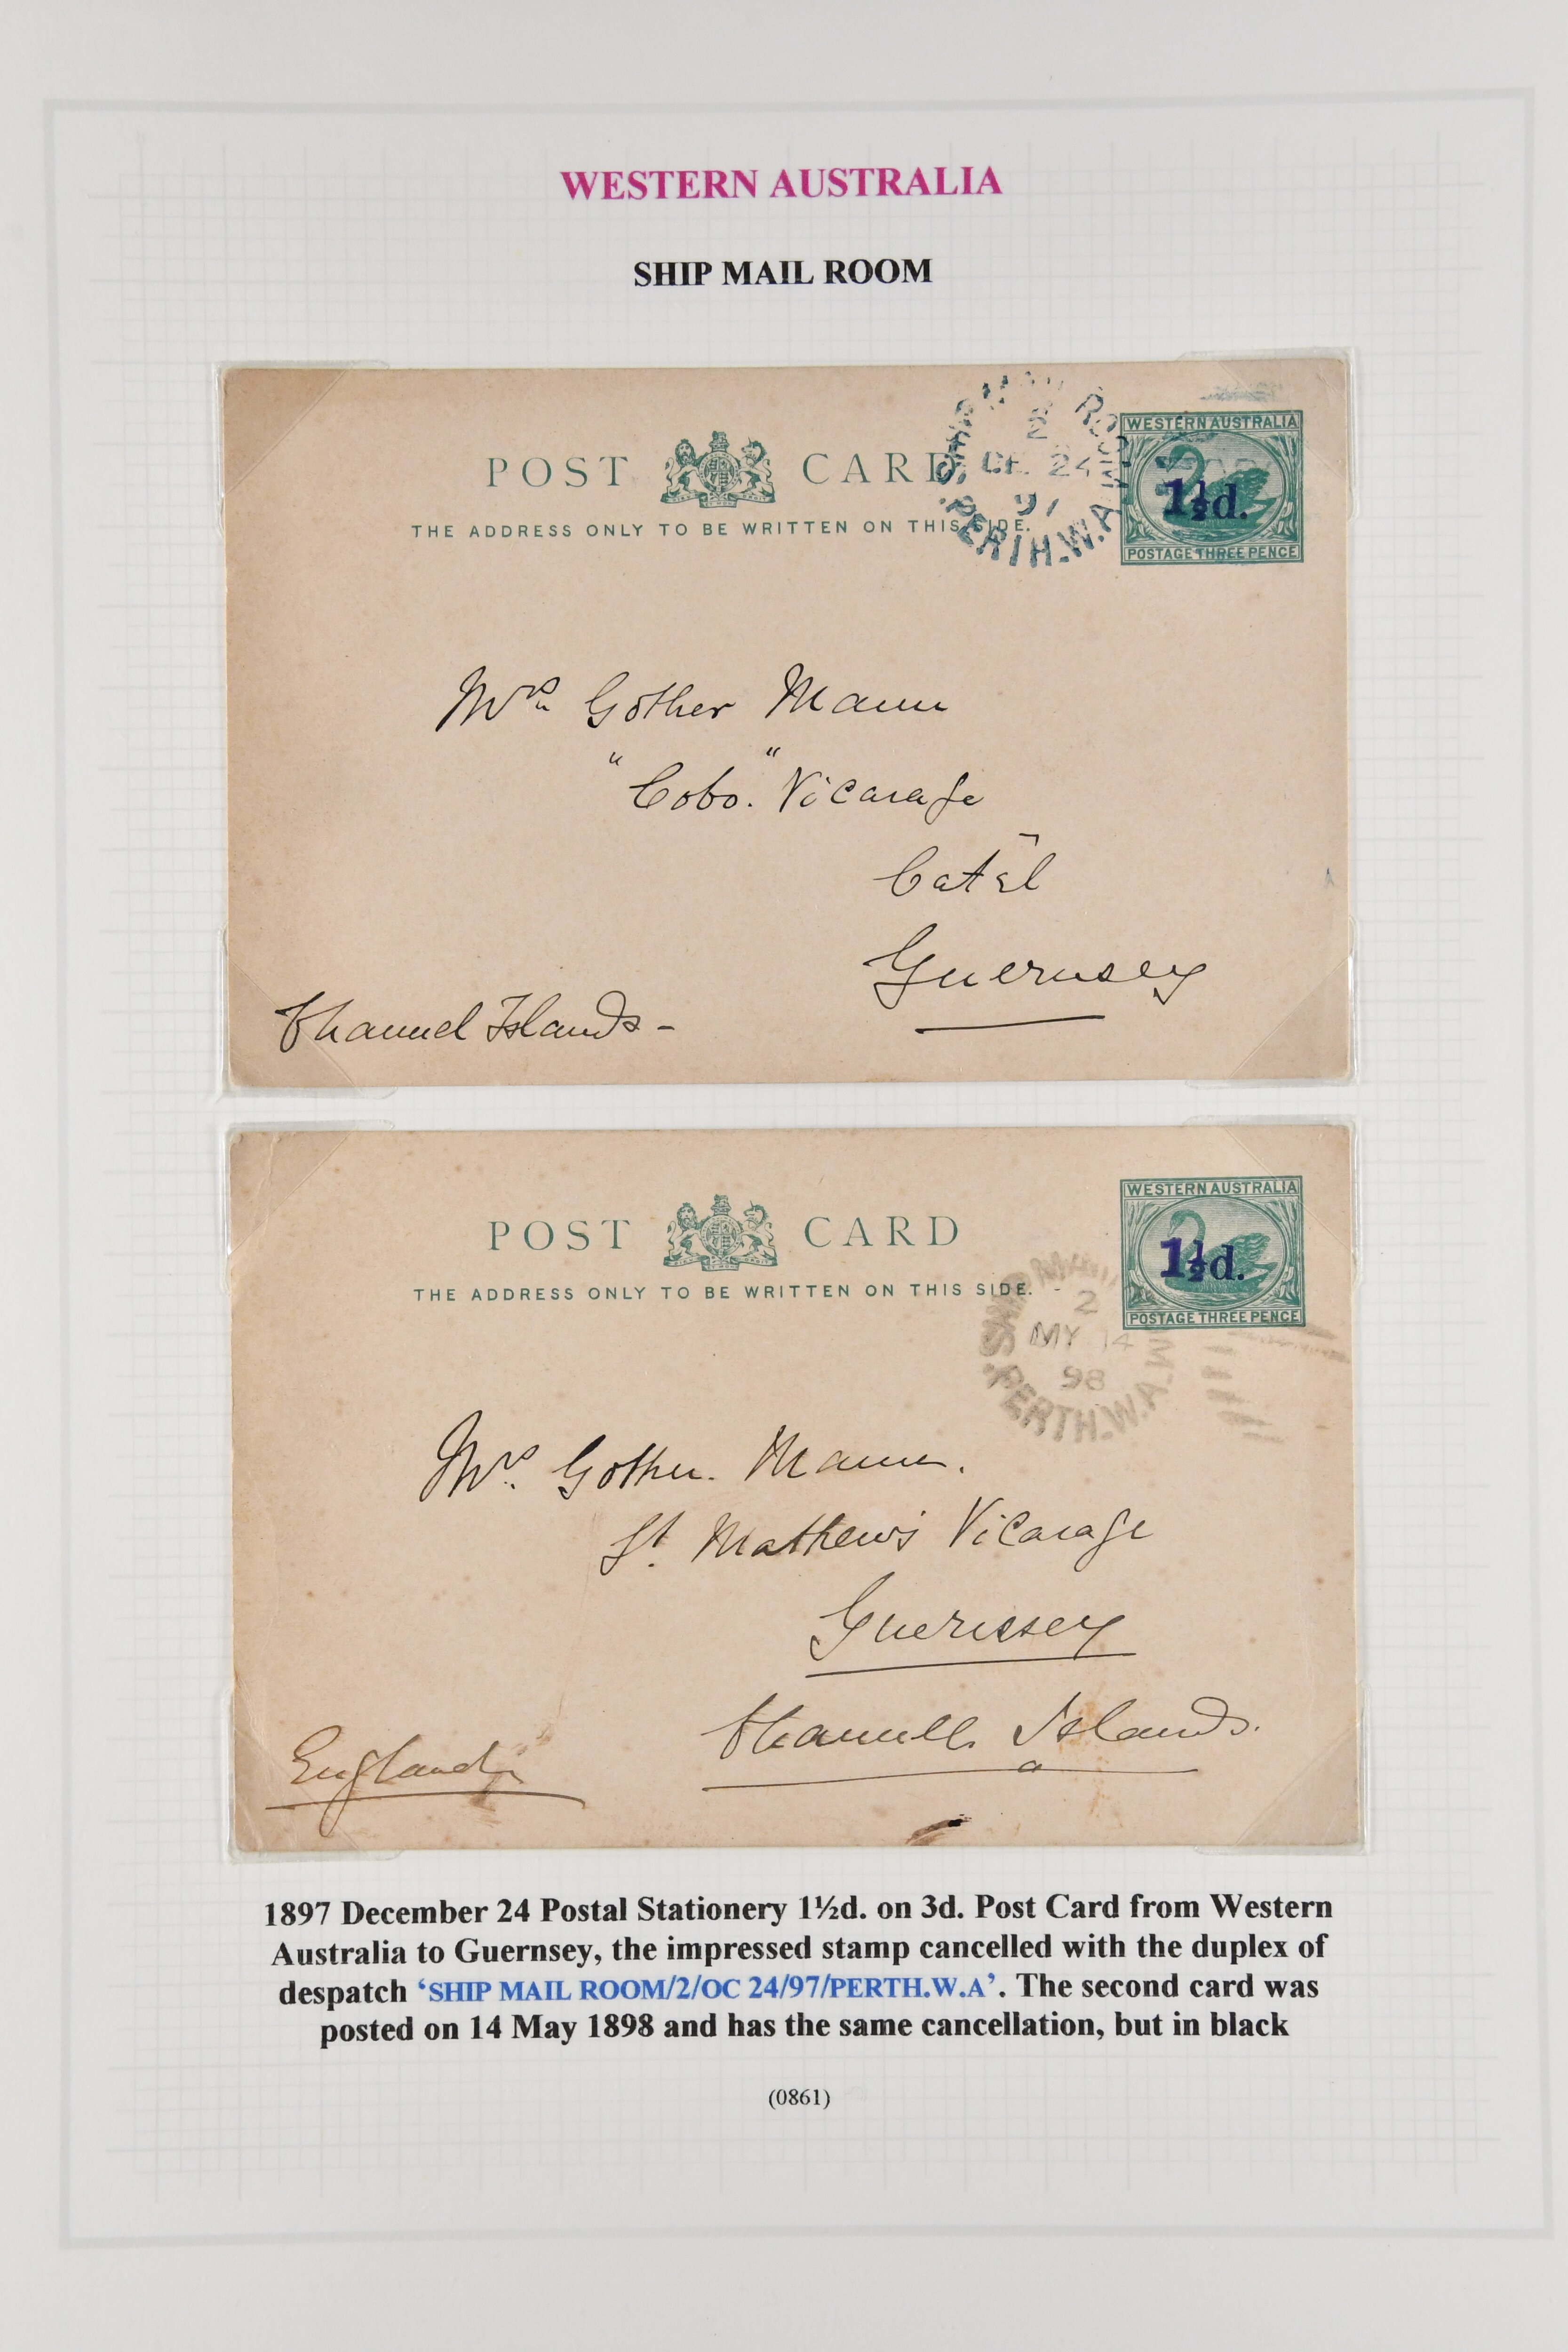 WESTERN AUSTRALIA
SHIP MAIL ROOM
POST CARD
THE ADDRESS ONLY TO BE WRITTEN ON THIS SIDE.
2
24
PERTH.W.A
WESTERN AUSTRALIA
1½d.
POSTAGE THREE PENCE
Mrs Gother Mann
"Cobo." Vicarage
Catel
Guernsey
Channel Islands -
POST CARD
THE ADDRESS ONLY TO BE WRITTEN ON THIS SIDE.
SHIP MAIL
2
MY 14
98
PERTH.W.A.
WESTERN AUSTRALIA
1½d.
POSTAGE THREE PENCE
Mrs. Gother. Mann.
St. Mathews Vicarage
Guernsey
Channell Islands.
England
1897 December 24 Postal Stationery 1½d. on 3d. Post Card from Western
Australia to Guernsey, the impressed stamp cancelled with the duplex of
despatch ‘SHIP MAIL ROOM/2/OC 24/97/PERTH.W.A’. The second card was
posted on 14 May 1898 and has the same cancellation, but in black
(0861)